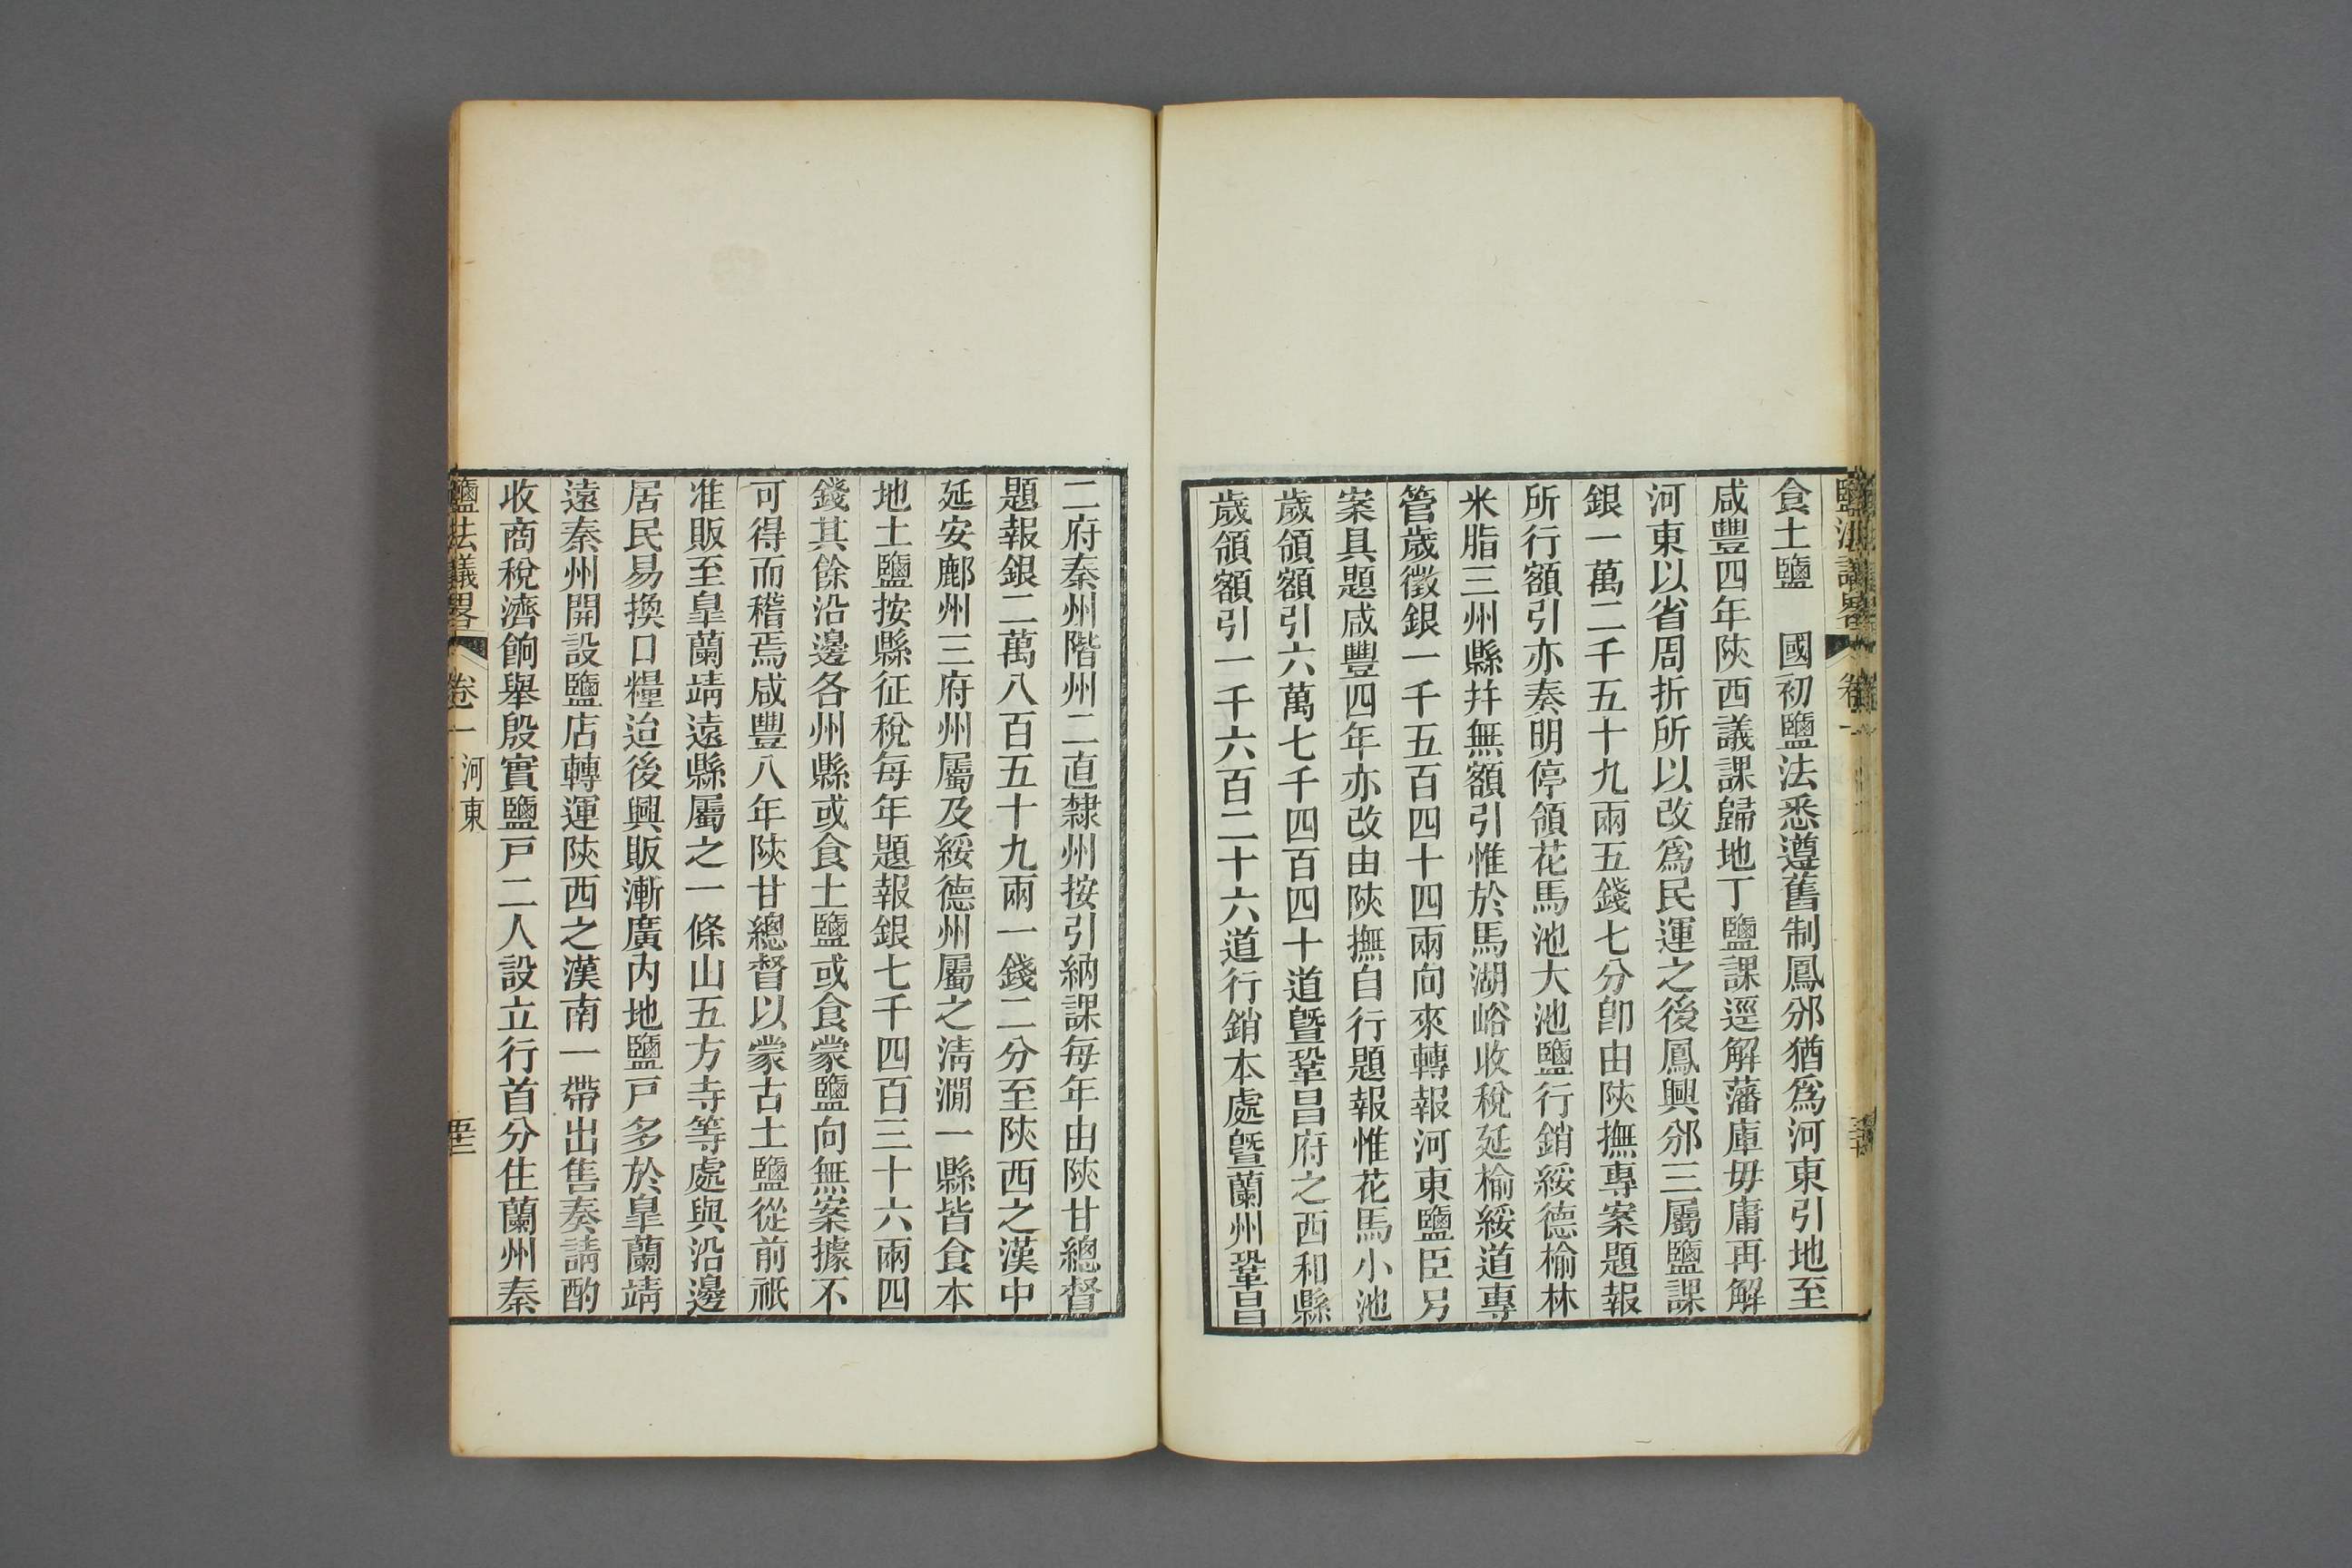 鹽法議畧 卷一
食土鹽 國初鹽法悉遵舊制鳳邠猶爲河東引地至
咸豐四年陝西議課歸地丁鹽課逕解藩庫毋庸再解
河東以省周折所以改爲民運之後鳳興邠三屬鹽課
銀一萬二千五十九兩五錢七分卽由陝撫專案題報
所行額引亦奏明停領花馬池大池鹽行銷綏德榆林
米脂三州縣幷無額引惟於馬湖峪收稅延榆綏道專
管歲徵銀一千五百四十四兩向來轉報河東鹽臣另
案具題咸豐四年亦改由陝撫自行題報惟花馬小池
歲領額引六萬七千四百四十道曁鞏昌府之西和縣
歲領額引一千六百二十六道行銷本處曁蘭州鞏昌
二府秦州階州二直隸州按引納課每年由陝甘總督
題報銀二萬八百五十九兩一錢二分至陝西之漢中
延安鄜州三府州屬及綏德州屬之清澗一縣皆食本
地土鹽按縣征稅每年題報銀七千四百三十六兩四
錢其餘沿邊各州縣或食土鹽或食蒙鹽向無案據不
可得而稽焉咸豐八年陝甘總督以蒙古土鹽從前祇
准販至皐蘭靖遠縣屬之一條山五方寺等處與沿邊
居民易換口糧迨後興販漸廣內地鹽戶多於皐蘭靖
遠秦州開設鹽店轉運陝西之漢南一帶出售奏請酌
收商稅濟餉舉殷實鹽戶二人設立行首分住蘭州秦
鹽法議畧 卷一 河東